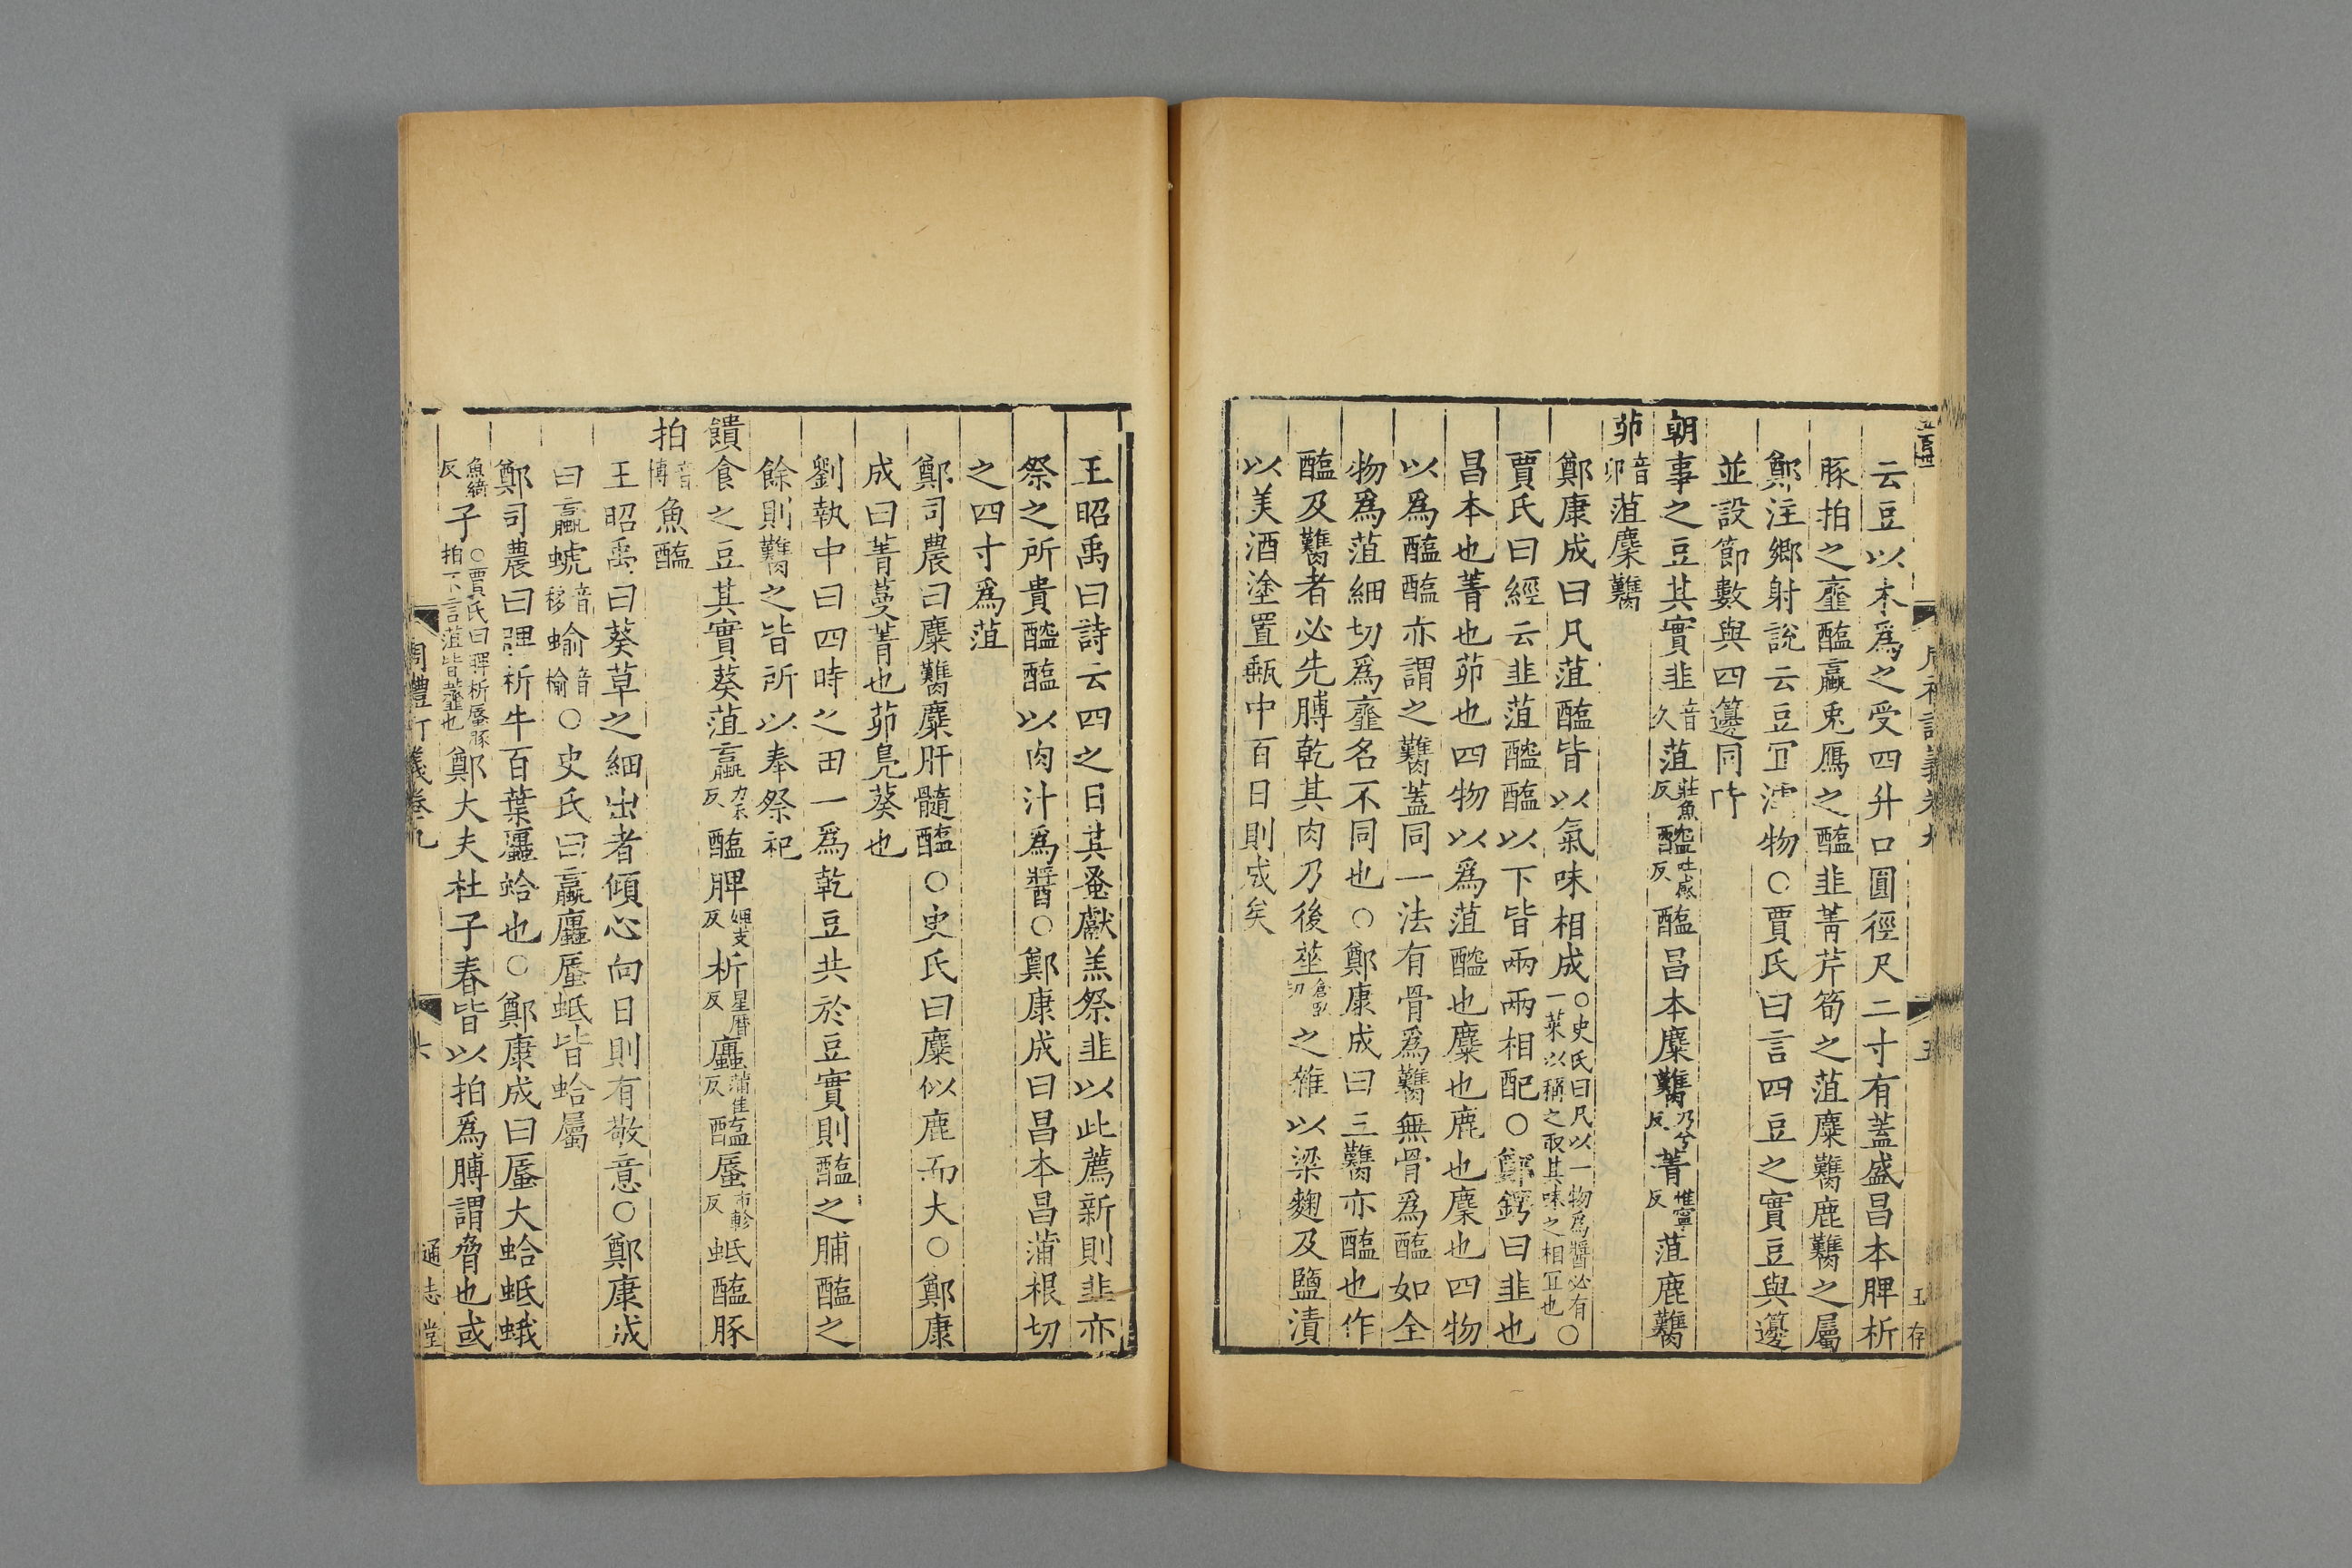 云豆以木爲之受四升口圓徑尺二寸有蓋盛昌本脾析
豚拍之齏醢蠃兎鴈之醢韭菁芹筍之菹麋臡鹿臡之屬
鄭注鄉射說云豆宜濡物○賈氏曰言四豆之實豆與籩
並設節數與四籩同時
朝事之豆其實韭音久菹莊魚反醓吐感反醢昌本麋臡乃兮反菁惟寧反菹鹿臡
茆音卯菹麋臡
鄭康成曰凡菹醢皆以氣味相成○史氏曰凡以一物爲醬必有一菜以稱之取其味之相宜也○
賈氏曰經云韭菹醓醢以下皆兩兩相配○鄭鍔曰韭也
昌本也菁也茆也四物以爲菹醓也麋也鹿也麇也四物
以爲醢醢亦謂之臡蓋同一法有骨爲臡無骨爲醢如全
物爲菹細切爲齏名不同也○鄭康成曰三臡亦醢也作
醢及臡者必先膊乾其肉乃後莝倉臥切之雜以梁麴及鹽漬
以美酒塗置甀中百日則成矣
王昭禹曰詩云四之日其蚤獻羔祭韭以此薦新則韭亦
祭之所貴醓醢以肉汁爲醬○鄭康成曰昌本昌蒲根切
之四寸爲菹
鄭司農曰麋臡麋肝髓醢○史氏曰麋似鹿而大○鄭康
成曰菁蔓菁也茆鳧葵也
劉執中曰四時之田一爲乾豆共於豆實則醢之脯醢之
餘則臡之皆所以奉祭祀
饋食之豆其實葵菹蠃力禾反醢脾婢支反析星曆反蠯蒲佳反醢蜃市軫反蚳醢豚
拍音博魚醢
王昭禹曰葵草之細出者傾心向日則有敬意○鄭康成
曰蠃螔音移蝓音榆○史氏曰蠃蠯蜃蚳皆蛤屬
鄭司農曰脾析牛百葉蠯蛤也○鄭康成曰蜃大蛤蚳蛾
魚綺反子○賈氏曰脾析蜃豚拍不言菹皆齏也鄭大夫杜子春皆以拍爲膊謂脅也或
周禮訂義卷九
六
通志堂